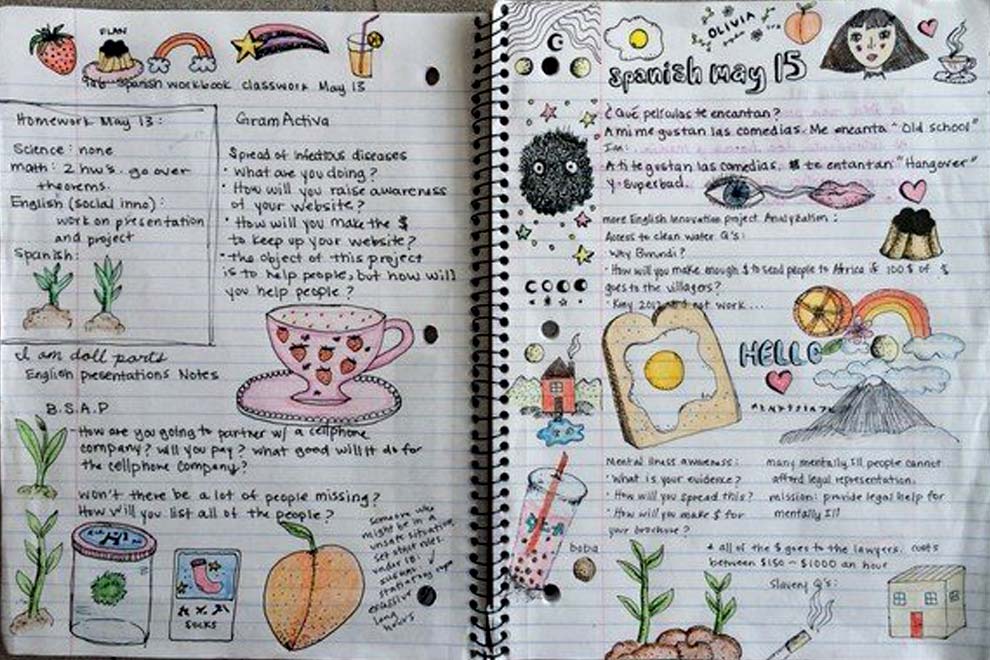 FLAN
spanish workbook classwork May 13
Homework May 13:
Science: none
math: 2 hw's. go over
theorems.
English (social inno):
work on presentation
and project
Spanish:
GramActiva
Spread of infectious diseases
• What are you doing?
• How will you raise awareness
of your website?
• How will you make the $
to keep up your website?
• the object of this project
is to help people, but how will
you help people?
I am doll parts
English presentations Notes
B.S.A.P
- How are you going to partner w/ a cellphone
company? will you pay? what good will it do for
the cellphone company?
won't there be a lot of people missing?
How will you list all of the people?
someone who
might be in a
unsafe situation
set strict rules.
under 18:
long
hours
SOCKS
OLIVIA
spanish may 15
¿Qué películas te encantan?
A mi me gustan las comedias. Me encanta "Old school"
A ti te gustan las comedias. te entantan "Hangover"
y superbad.
more English Innovation project Analyzation:
Access to clean water Q's:
• Why Burundi?
• How will you make enough $ to send people to Africa if 100% of $
goes to the villagers?
• Kony 2012 did not work...
HELLO
Mental illness awareness:
• What is your evidence?
• How will you spread this?
• How will you make $ for
your brochure?
many mentally Ill people cannot
afford legal representation.
mission: provide legal help for
mentally Ill
all of the $ goes to the lawyers. costs
between $150 - $1000 an hour
Slavery Q's:
boba